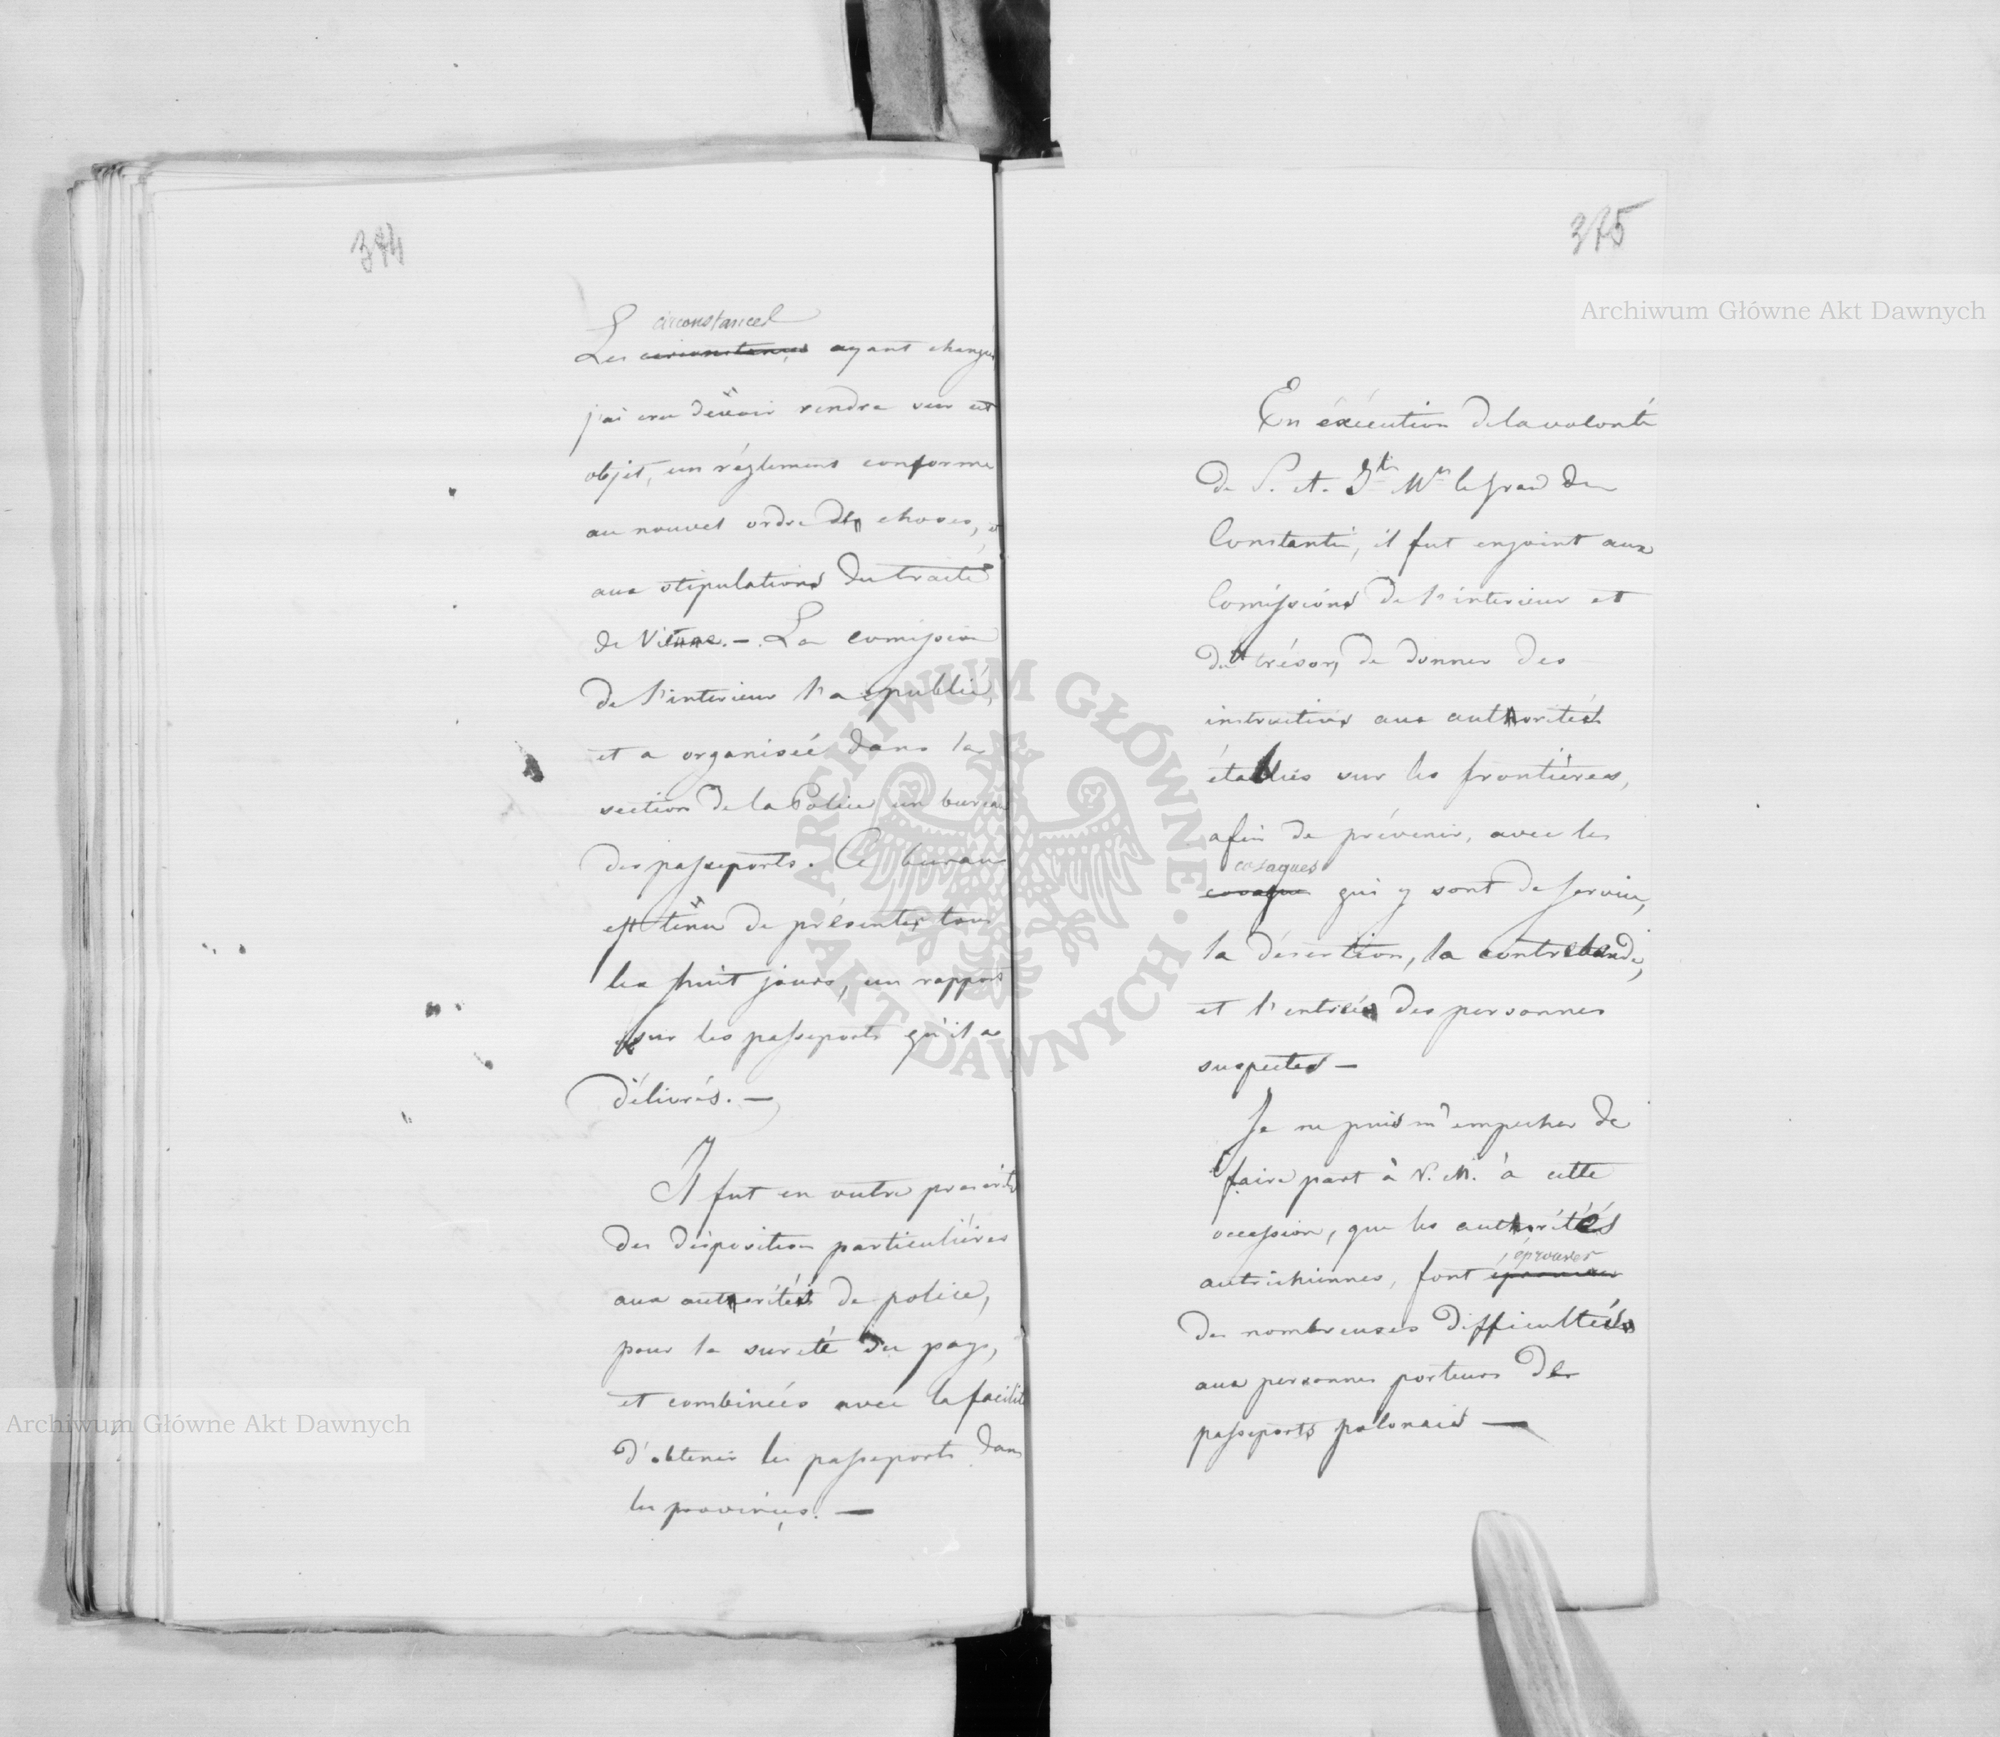 374
circonstances
Les circonstances ayant changé
j'ai cru devoir rendre sur cet
objet, un réglement conforme
au nouvel ordre des choses,
aux stipulations du traité
de Vienne. — La comission
de l'interieur l'a publié,
et a organiseé dans la
section de la Police un bureau
des passeports. Ce bureau
est tenu de présenter tous
les huit jours, un rapport
sur les passeports qu'il a
délivrés. —
Il fut en outre prescrit
des dispositions particulières
aux authorités de police,
pour la sureté du pays,
et combineés avec la facilité
d'obtenir les passeports dans
les provinces. —
375
En éxécution de la volonté
de S. A. I. Mgr le grand duc
Constantin, il fut enjoint aux
Comissions de l'interieur et
du trésor, de donner des
instructions aux authorités
établies sur les frontières,
afin de prévenir, avec les
cosaques
cosaques qui y sont de service,
la désertion, la contrebande,
et l'entrée des personnes
suspectes —
Je ne puis m'empecher de
faire part à V. M. à cette
occassion, que les authorités
éprouver
autrichiennes, font éprouver
de nombreuses difficultés
aux personnes porteurs des
passeports polonais —
Archiwum Główne Akt Dawnych
Archiwum Główne Akt Dawnych
ARCHIWUM GŁÓWNE · AKT DAWNYCH ·